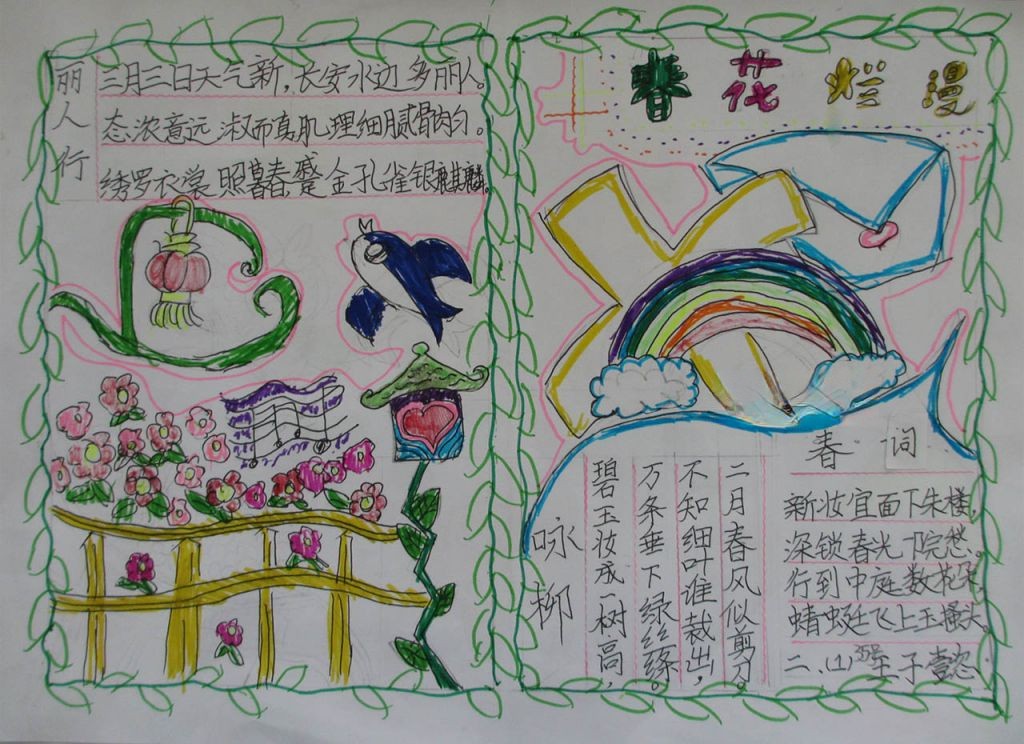 丽人行
三月三日天气新，长安水边多丽人。
态浓意远 淑而真肌理细腻骨肉匀。
绣罗衣裳 照暮春蹙 金孔雀银麒麟。
春花烂漫
咏柳
碧玉妆成一树高，
万条垂下绿丝绦。
不知细叶谁裁出，
二月春风似剪刀。
春词
新妆宜面下朱楼，
深锁春光一院愁。
行到中庭数花朵，
蜻蜓飞上玉搔头。
二、(1)